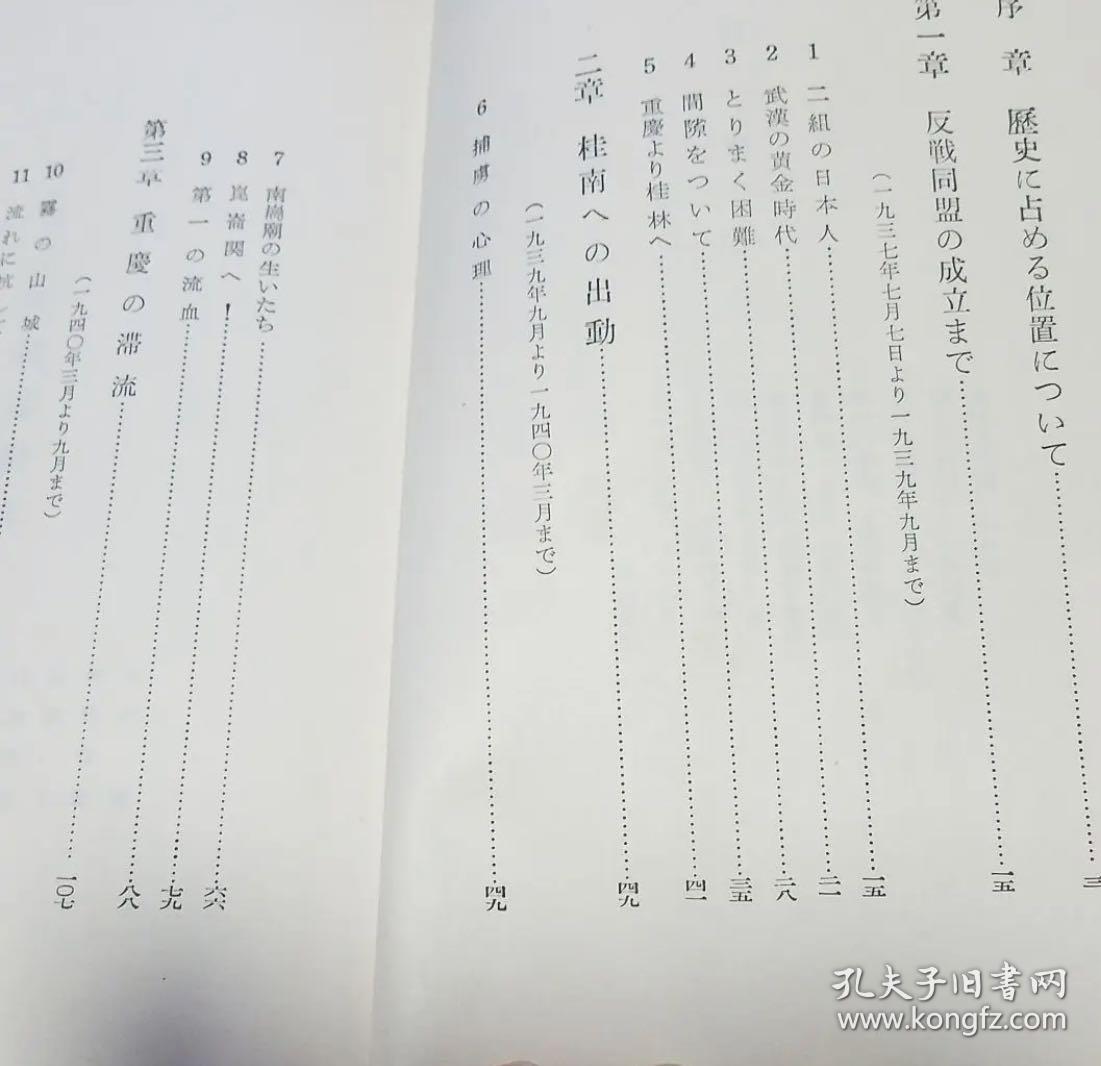 序章 歷史に占める位置について……三
第一章 反戦同盟の成立まで……一五
(一九三七年七月七日より一九三九年九月まで)
1 二組の日本人……一五
2 武漢の黄金時代……二一
3 とりまく困難……二八
4 間隙をついて……三五
5 重慶より桂林へ……四一
二章 桂南への出動……四九
(一九三九年九月より一九四〇年三月まで)
6 捕虜の心理……四九
7 南崗廟の生いたち……六六
8 崑崙関へ！……七九
9 第一の流血……八八
第三章 重慶の滞流……一〇七
(一九四〇年三月より九月まで)
10 霧の山城……
11 流れに抗して
孔夫子旧書网
www.kongfz.com